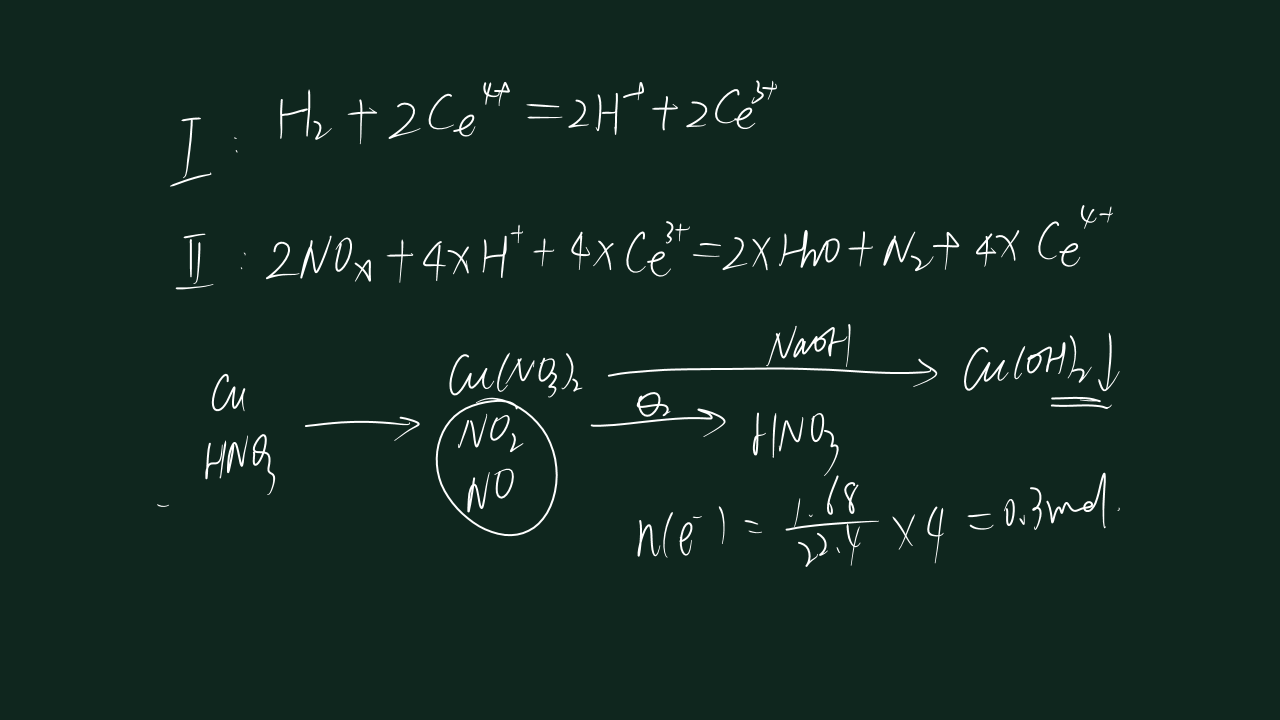 I : H₂ + 2Ce⁴⁺ = 2H⁺ + 2Ce³⁺
II : 2NOₓ + 4xH⁺ + 4xCe³⁺ = 2xH₂O + N₂ + 4xCe⁴⁺
NaOH
Cu Cu(NO₃)₂ → Cu(OH)₂↓
O₂
HNO₃ → NO₂ → HNO₃
NO
n(e⁻) = 1.68/22.4 × 4 = 0.3mol.